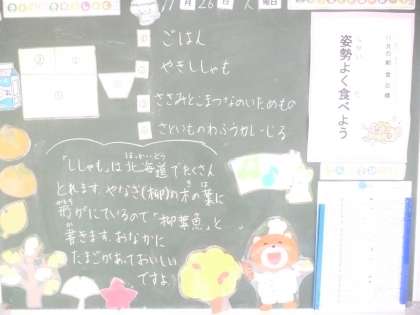 11月26日 火曜日
ごはん
やきししゃも
ささみとこまつなのいためもの
さといものわふうカレーじる
ほっかいどう
「ししゃも」は北海道でたくさん
とれます。やなぎ(柳)の木の葉に
形がにているので「柳葉魚」と
書きます。おなかに
たまごがあっておいしい
ですよ
姿勢よく食べよう
② ①
①